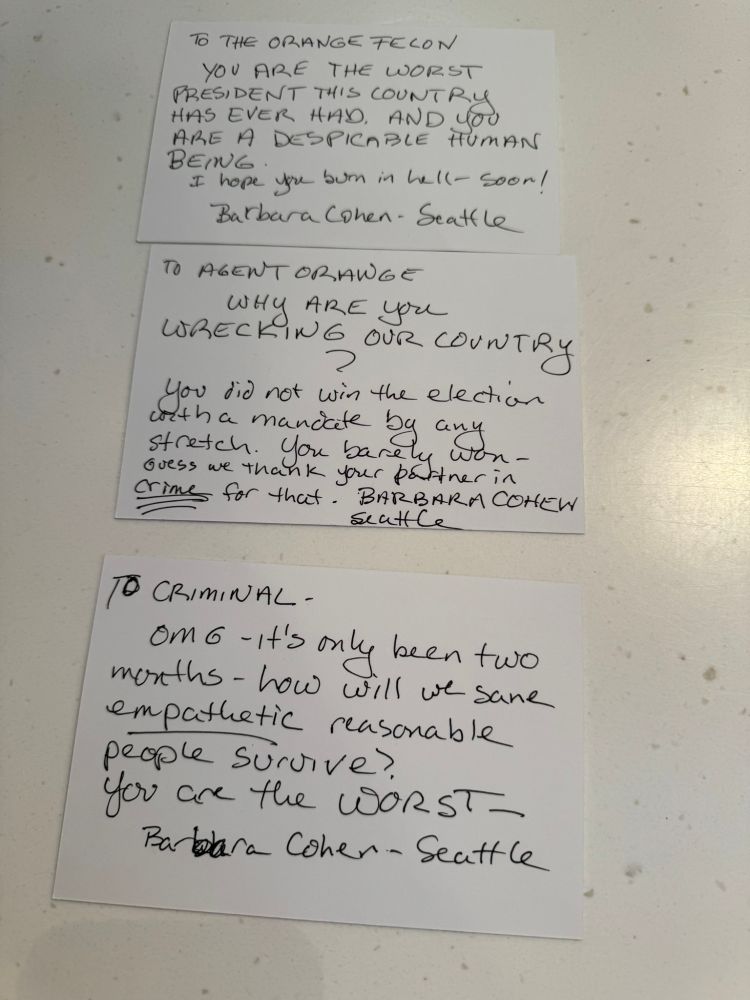 TO THE ORANGE FELON
YOU ARE THE WORST
PRESIDENT THIS COUNTRY
HAS EVER HAD. AND YOU
ARE A DESPICABLE HUMAN
BEING.
I hope you burn in hell - soon!
Barbara Cohen - Seattle
TO AGENT ORANGE
WHY ARE YOU
WRECKING OUR COUNTRY
?
You did not win the election
with a mandate by any
stretch. You barely won -
Guess we thank your partner in
crime for that. BARBARA COHEN
Seattle
TO CRIMINAL -
OMG - it's only been two
months - how will we sane
empathetic reasonable
people survive?
You are the WORST -
Barbara Cohen - Seattle